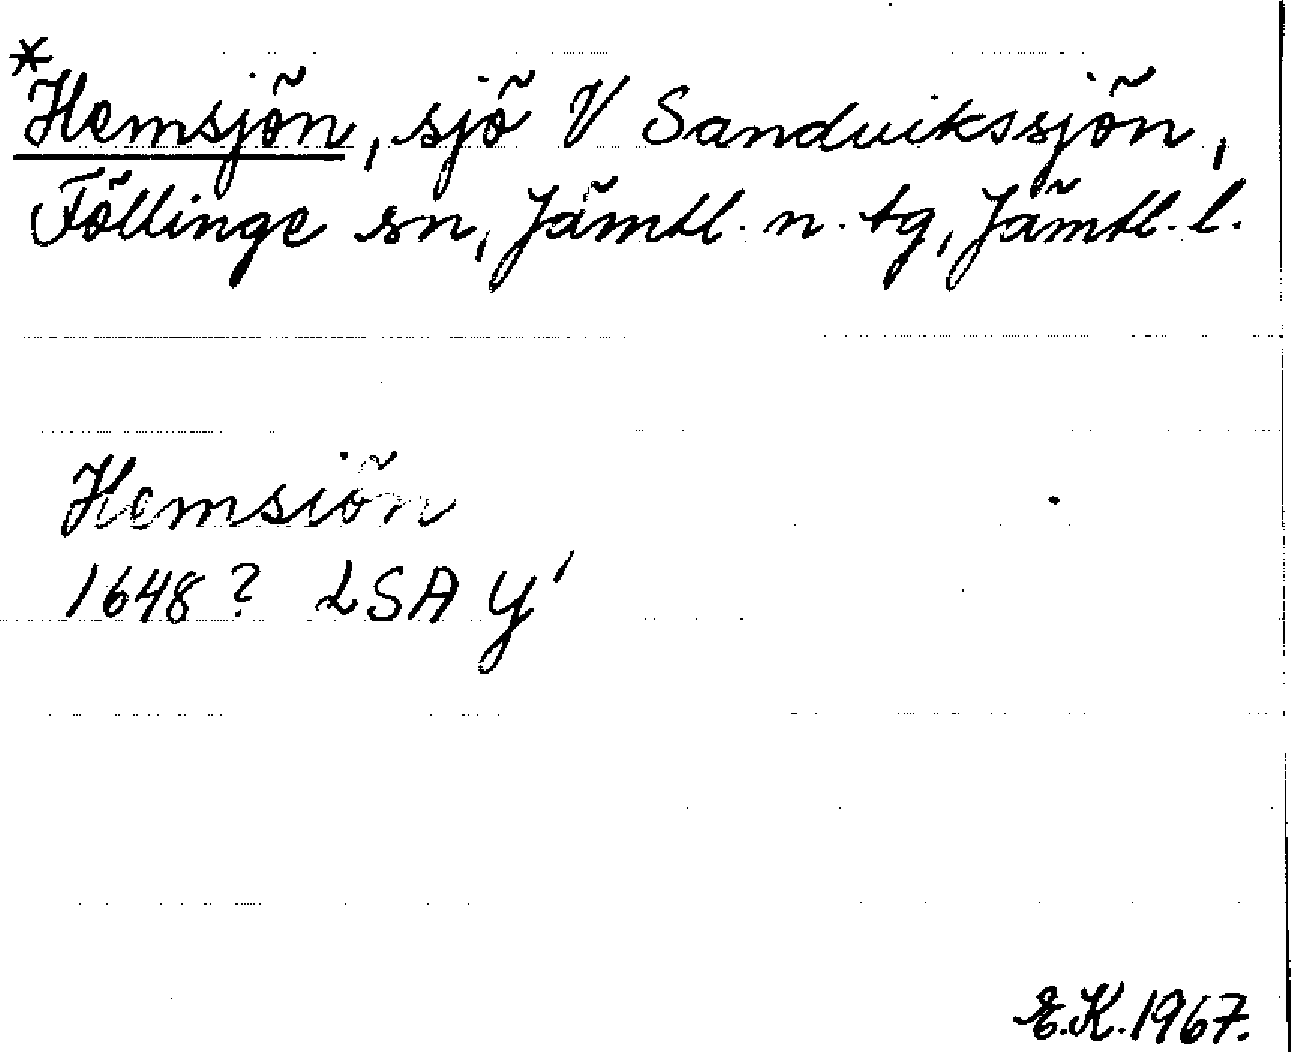 *Hemsjön, sjö V Sandvikssjön,
Föllinge sn, Jämtl. n. tg, Jämtl. l.
Hemsiön
1648? LSA Y'
E.K. 1967.